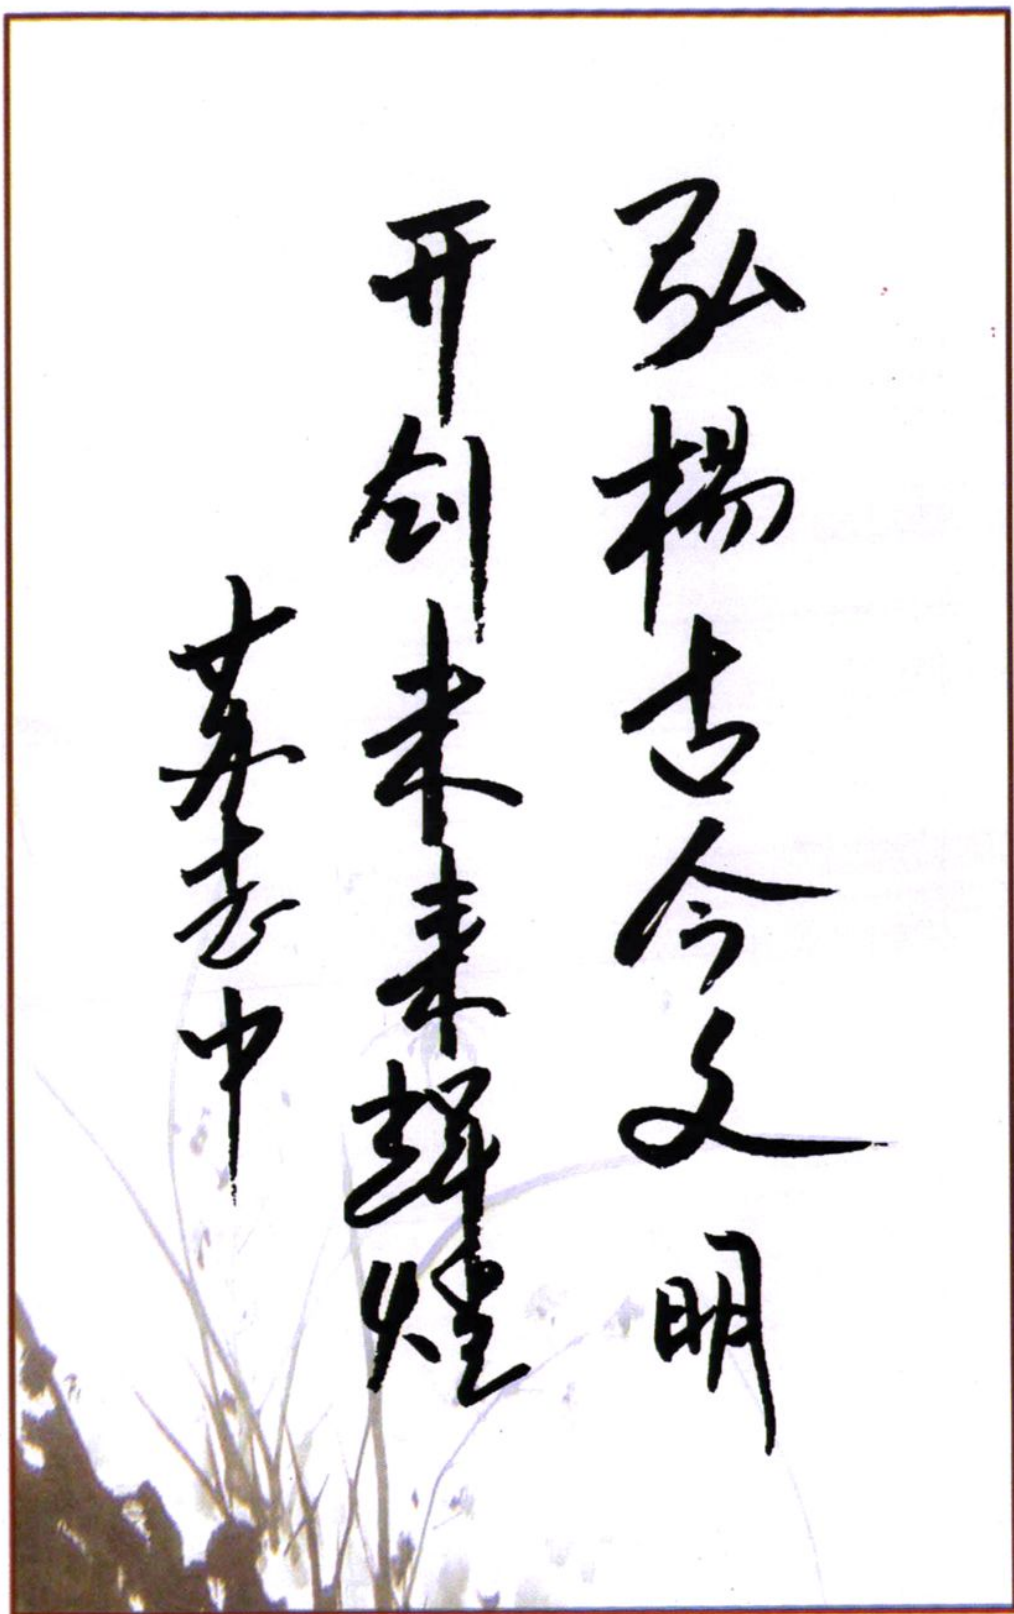 弘楊古今文明
开创未来辉煌
中